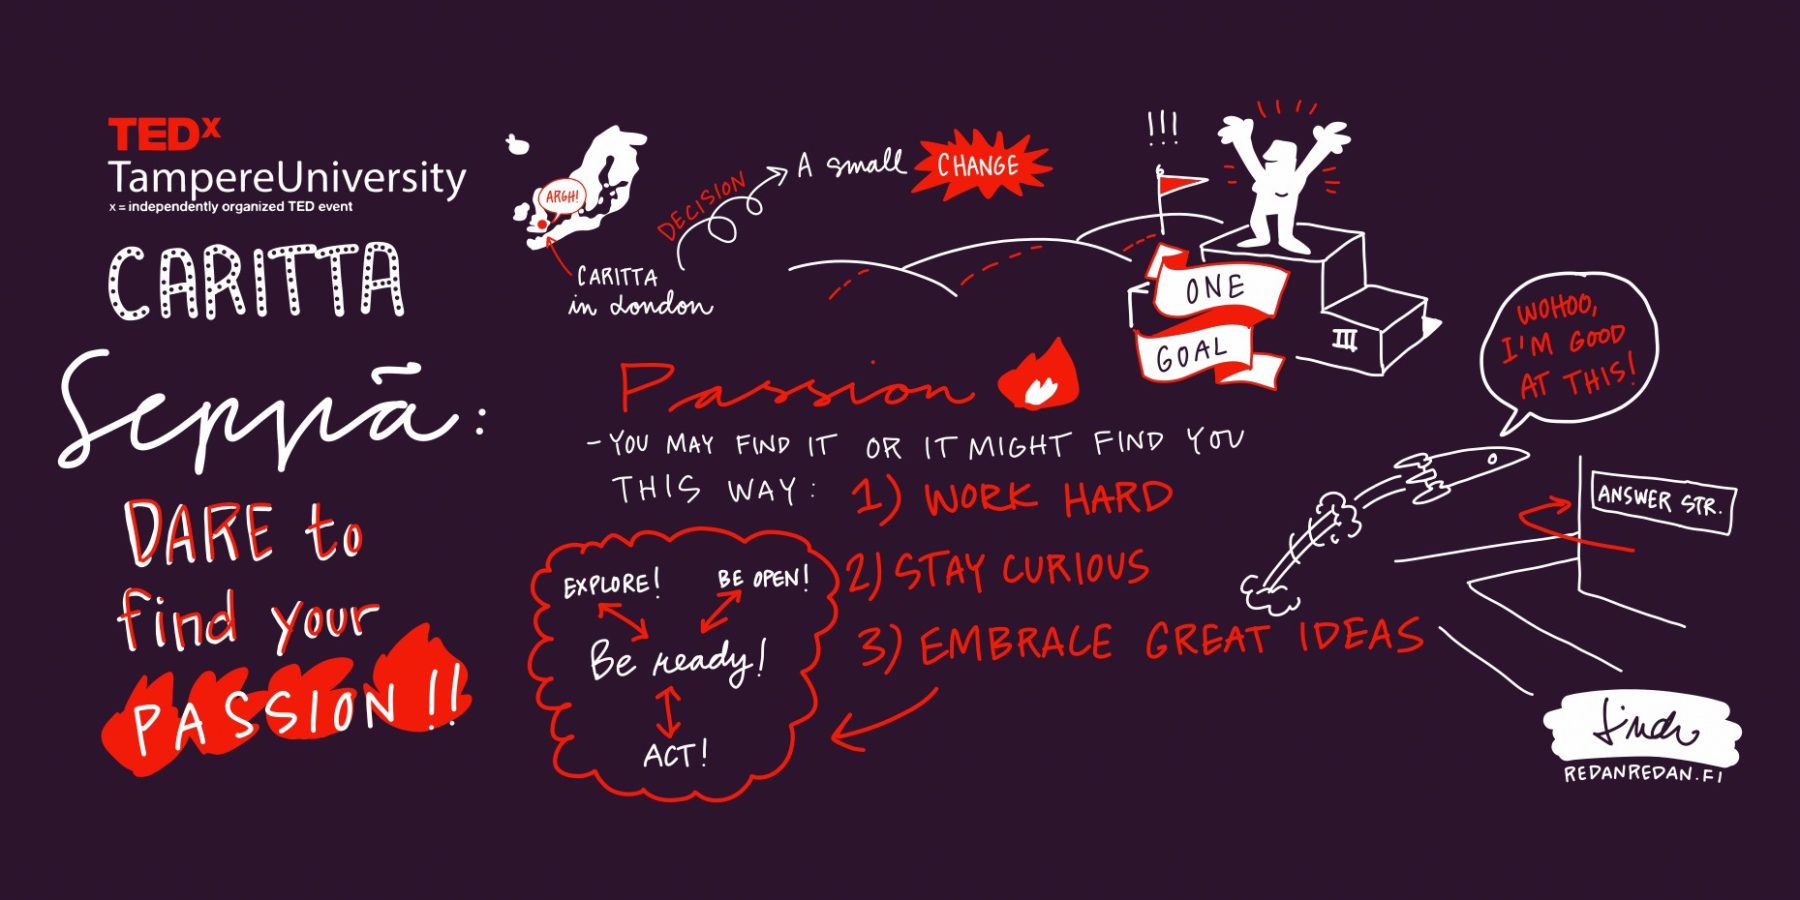 TEDx
TampereUniversity
x = independently organized TED event
CARITTA
Seppä:
DARE to
find your
PASSION!!
ARGH!
CARITTA
in London
DECISION
A small CHANGE
!!!
ONE
GOAL
III
WOHOO,
I'M GOOD
AT THIS!
Passion
- YOU MAY FIND IT OR IT MIGHT FIND YOU
THIS WAY:
1) WORK HARD
2) STAY CURIOUS
3) EMBRACE GREAT IDEAS
EXPLORE!
BE OPEN!
Be ready!
ACT!
ANSWER STR.
REDANREDAN.FI